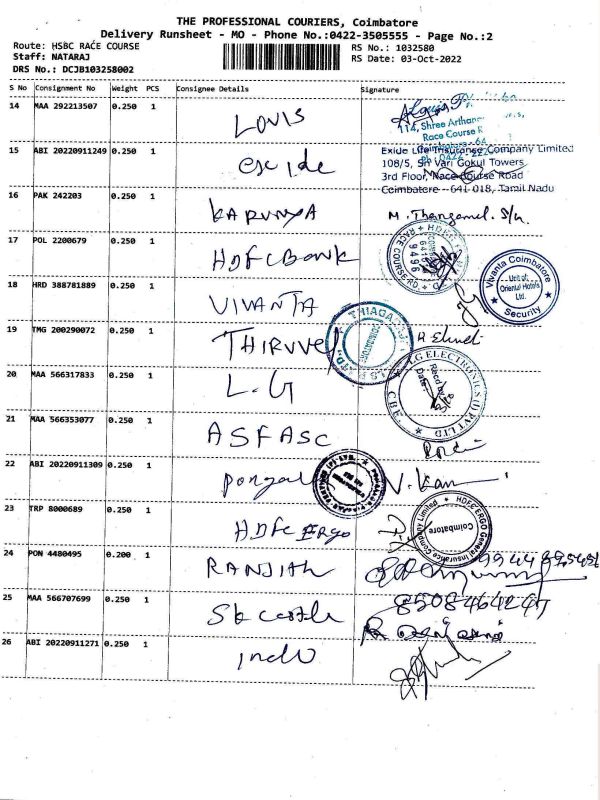 THE PROFESSIONAL COURIERS, Coimbatore
Delivery Runsheet - MO - Phone No.:0422-3505555 - Page No.:2
Route: HSBC RACE COURSE
RS No.: 1032580
Staff: NATARAJ
RS Date: 03-Oct-2022
DRS No.: DCJB103258002
S No Consignment No Weight PCS Consignee Details Signature
14 MAA 292213507 0.250 1 LOUIS
114, Shree
Race Course
15 ABI 20220911249 0.250 1 exide
Exide Life Insurance Company Limited
108/5, Sri Vari Gokul Towers
3rd Floor, Race Course Road
Coimbatore - 641 018, Tamil Nadu
16 PAK 242203 0.250 1 KARUNYA
17 POL 2200679 0.250 1 HDFC Bank
RACE COURSE RD
9496
18 HRD 388781889 0.250 1 VIVANTA
Vivanta Coimbatore
Unit of:
Oriental Hotels
Ltd.
Security
19 TMG 200290072 0.250 1 THIRUVE
COIMBATORE
20 MAA 566317833 0.250 1 L.G
LG ELECTRONICS (I) PVT LTD
CBE
Recd by
Date:
21 MAA 566353077 0.250 1 ASFASC
22 ABI 20220911309 0.250 1
23 TRP 8000689 0.250 1 HDFC ERGO
HDFC ERGO General Insurance Company Limited
Coimbatore
24 PON 4480495 0.200 1 RANJITH
25 MAA 566707699 0.250 1 Sk castle
8508464247
26 ABI 20220911271 0.250 1 indo